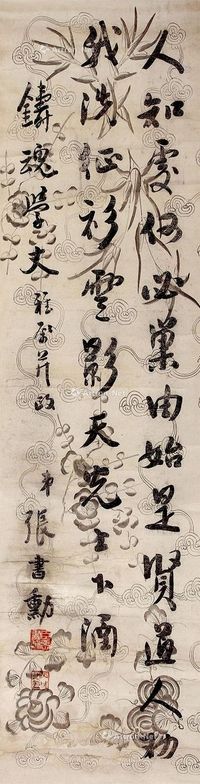 人知處何必巢由始是賢道人
我洗征衫雲影天光上下
鑄魂學夫雅屬并政
弟張書勳